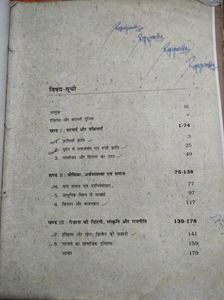 विषय-सूची
आमुख iii
v
खण्ड I : घटनाएँ और प्रक्रियाएँ 1-74
1. फ्रांसीसी क्रांति 3
2. यूरोप में समाजवाद एवं रूसी क्रांति 25
3. नात्सीवाद और हिटलर का उदय 49
खण्ड II : जीविका, अर्थव्यवस्था एवं समाज 75-138
4. वन्य समाज एवं उपनिवेशवाद 77
5. आधुनिक विश्व में चरवाहे 97
6. किसान और काश्तकार 117
खण्ड III : रोज़ाना की ज़िंदगी, संस्कृति और राजनीति 139-178
7. इतिहास और खेल: क्रिकेट की कहानी 141
8. पहनावे का सामाजिक इतिहास 159
आभार 179